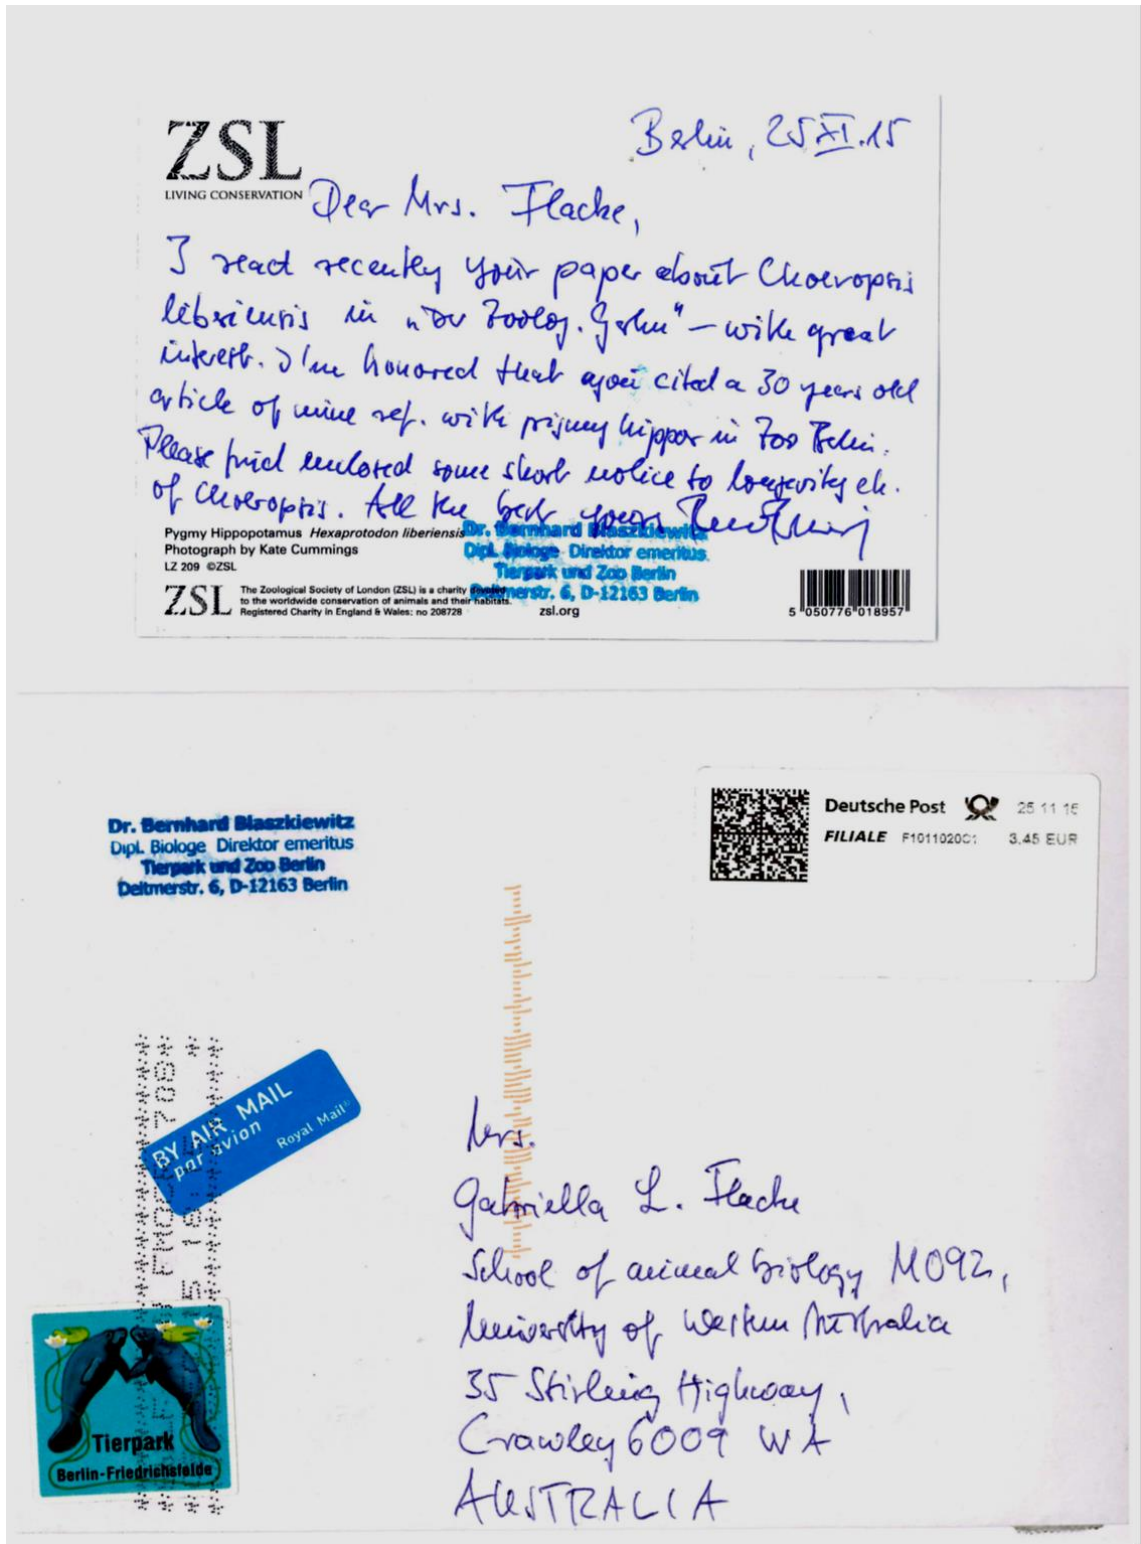 ZSL
LIVING CONSERVATION
Berlin, 25 XI. 15
Dear Mrs. Flacke,
I read recently your paper about Choeropsis
liberiensis in "Der Zoolog. Garten" – with great
interest. I'm honored that you cited a 30 years old
article of mine ref. with pigmy hippos in Zoo Berlin.
Please find enclosed some short notice to longevity etc.
of Choeropsis. All the best yours
Pygmy Hippopotamus Hexaprotodon liberiensis
Photograph by Kate Cummings
LZ 209 ©ZSL
Dr. Bernhard Blaszkiewitz
Dipl. Biologe Direktor emeritus
Tierpark und Zoo Berlin
Deitmerstr. 6, D-12163 Berlin
ZSL
The Zoological Society of London (ZSL) is a charity devoted
to the worldwide conservation of animals and their habitats.
Registered Charity in England & Wales: no 208728
zsl.org
5 050776 018957
Dr. Bernhard Blaszkiewitz
Dipl. Biologe Direktor emeritus
Tierpark und Zoo Berlin
Deitmerstr. 6, D-12163 Berlin
Deutsche Post
FILIALE
3,45 EUR
BY AIR MAIL
par avion
Royal Mail
Mrs.
Gabriella L. Flacke
School of animal biology M092,
University of Western Australia
35 Stirling Highway,
Crawley 6009 WA
AUSTRALIA
Tierpark
Berlin-Friedrichsfelde